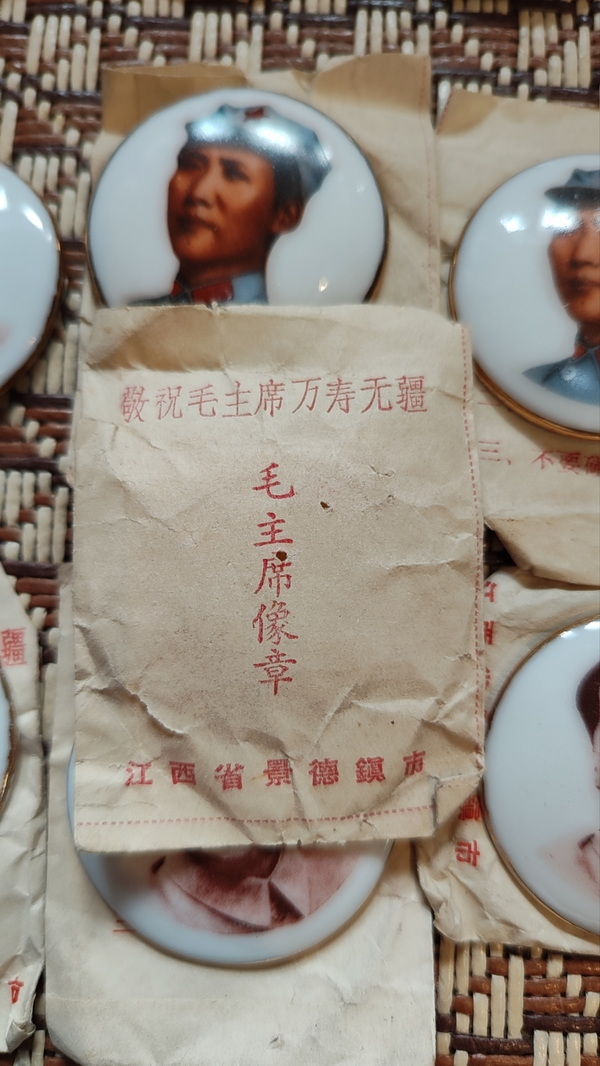 敬祝毛主席万寿无疆
毛主席像章
江西省景德鎮市
三、不要
疆
市
市